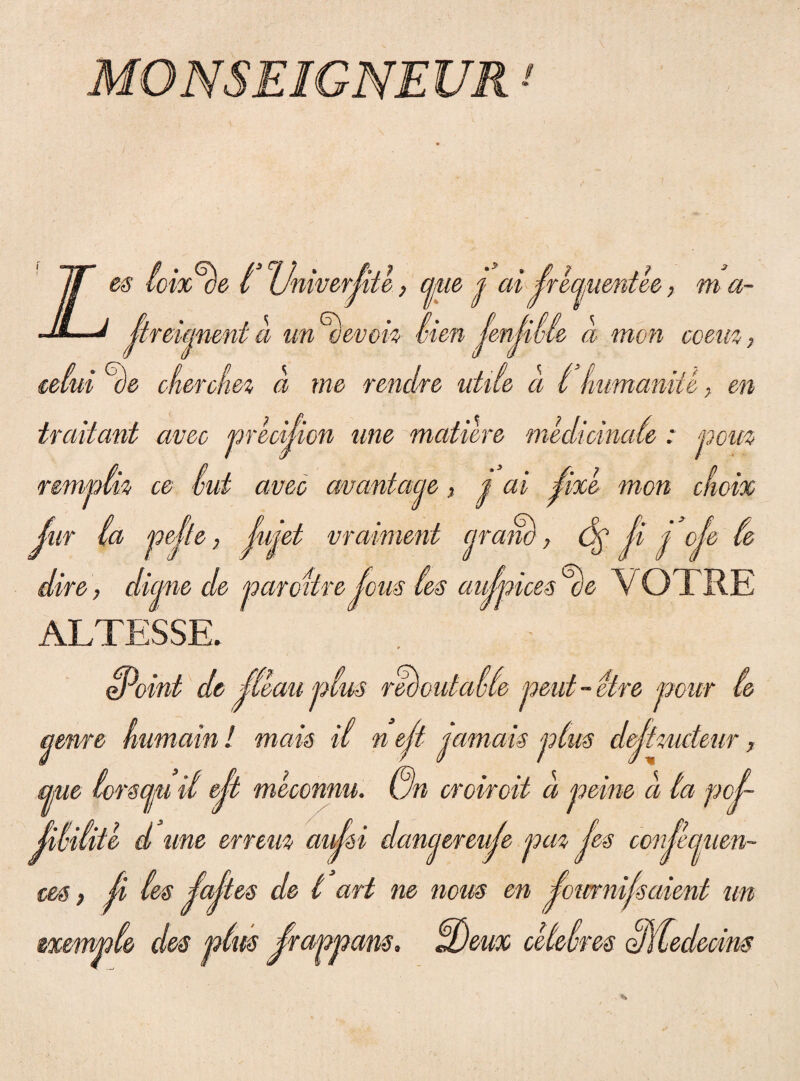 MONSEIGNEUR!
Les loix de l'Univerſité, que j'ai fréquentée, m'a-
ſtreignent à un devoir bien ſenſible à mon coeur,
celui de chercher à me rendre utile à l'humanité, en
traitant avec préciſion une matière médicinale : pour
remplir ce but avec avantage, j'ai fixé mon choix
ſur la peſte, ſujet vraiment grand, & ſi j'oſe le
dire, digne de paroître ſous les auſpices de VOTRE
ALTESSE.
Point de fléau plus rédoutable peut-être pour le
genre humain! mais il n'eſt jamais plus deſtructeur,
que lorsqu'il eſt méconnu. On croiroit à peine à la poſ-
ſibilité d'une erreur auſsi dangereuſe par ſes conſéquen-
ces, ſi les faſtes de l'art ne nous en fourniſsaient un
exemple des plus frappans. Deux célebres Medecins